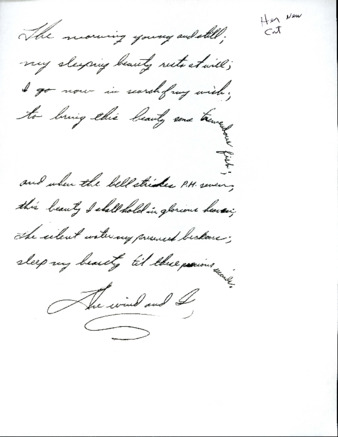 Her Now
Cat
The morning young and still,
my sleeping beauty rests at will;
I go now in search of my wish,
to bring this beauty some tremendous fish;
and when the bell strikes P.M. seven,
this beauty I shall hold in glorious heaven;
the silent water my presence beckons;
sleep my beauty 'til these precious seconds.
The wind and I,